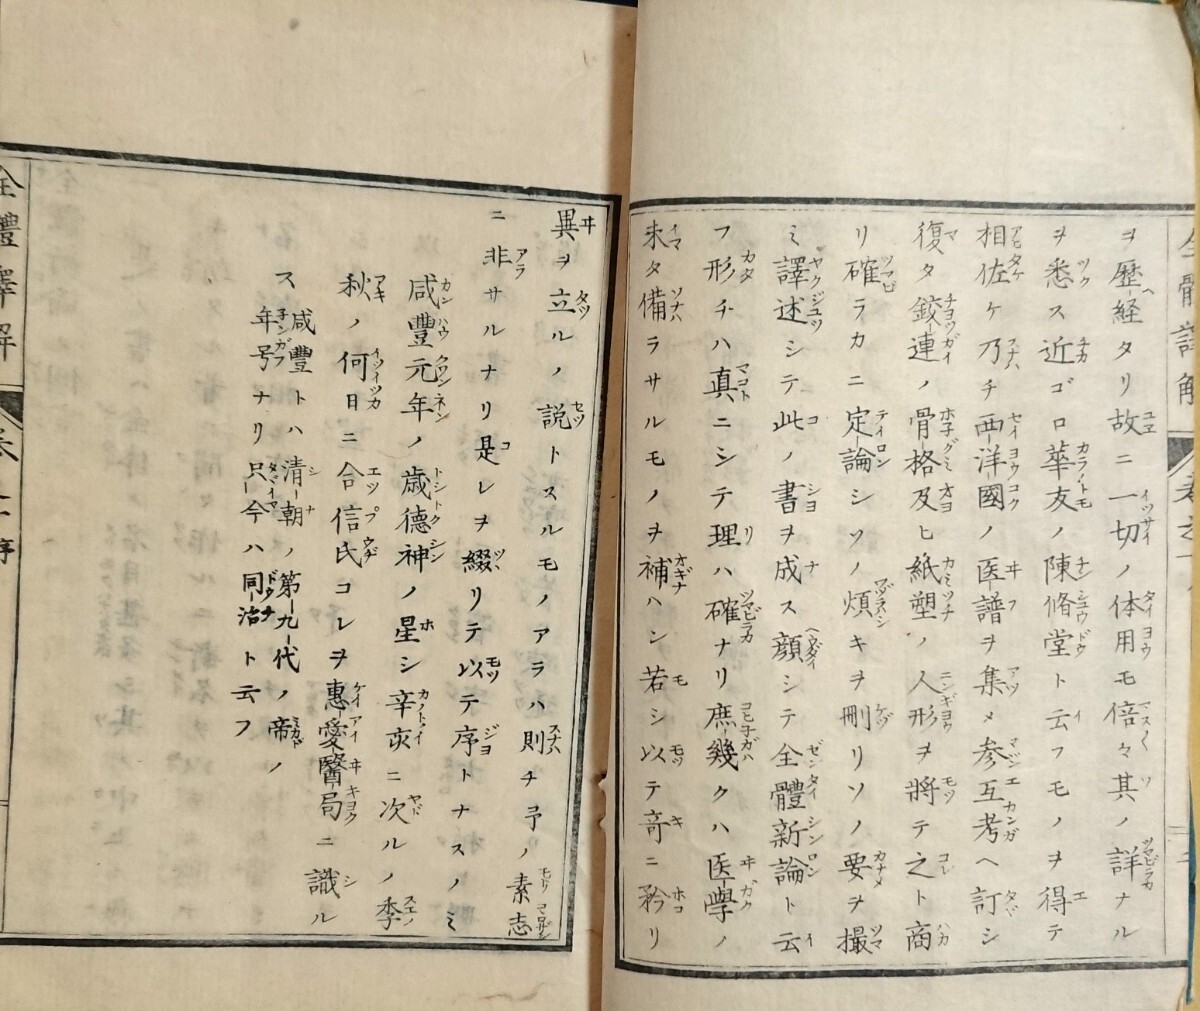 ヲ歴経タリ故ニ一切ノ体用モ倍々其ノ詳ナル
ヲ悉ス近ゴロ華友ノ陳脩堂ト云フモノヲ得テ
相佐ケ乃チ西洋國ノ医譜ヲ集メ参互考ヘ訂シ
復タ鉸連ノ骨格及ヒ紙塑ノ人形ヲ將テ之ト商
リ確ラカニ定論シソノ煩キヲ刪リソノ要ヲ撮
ミ譯述シテ此ノ書ヲ成ス顔シテ全體新論ト云
フ形チハ真ニシテ理ハ確ナリ庶幾クハ医學ノ
未タ備ラサルモノヲ補ハン若シ以テ奇ニ矜リ
異ヲ立ルノ説トスルモノアラハ則チ予ノ素志
ニ非サルナリ是レヲ綴リテ以テ序トナスノミ
咸豐元年ノ歳德神ノ星シ辛亥ニ次ルノ季
秋ノ何日ニ合信氏コレヲ惠愛醫局ニ識ル
咸豐トハ清朝ノ第九代ノ帝ノ
年号ナリ只今ハ同治ト云フ
全體譯解